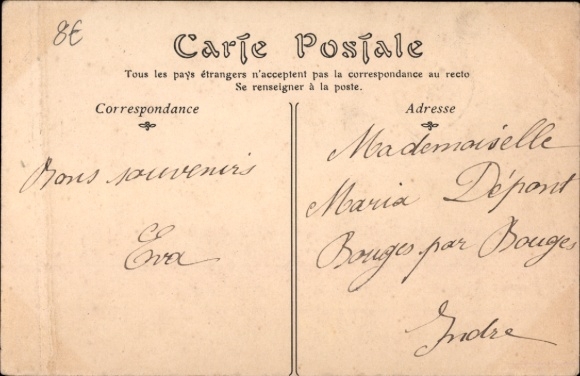 8€
Carte Postale
Tous les pays étrangers n'acceptent pas la correspondance au recto
Se renseigner à la poste.
Correspondance
Adresse
Bons souvenirs
Eva
Mademoiselle
Maria Dépont
Bouges par Bouges
Indre